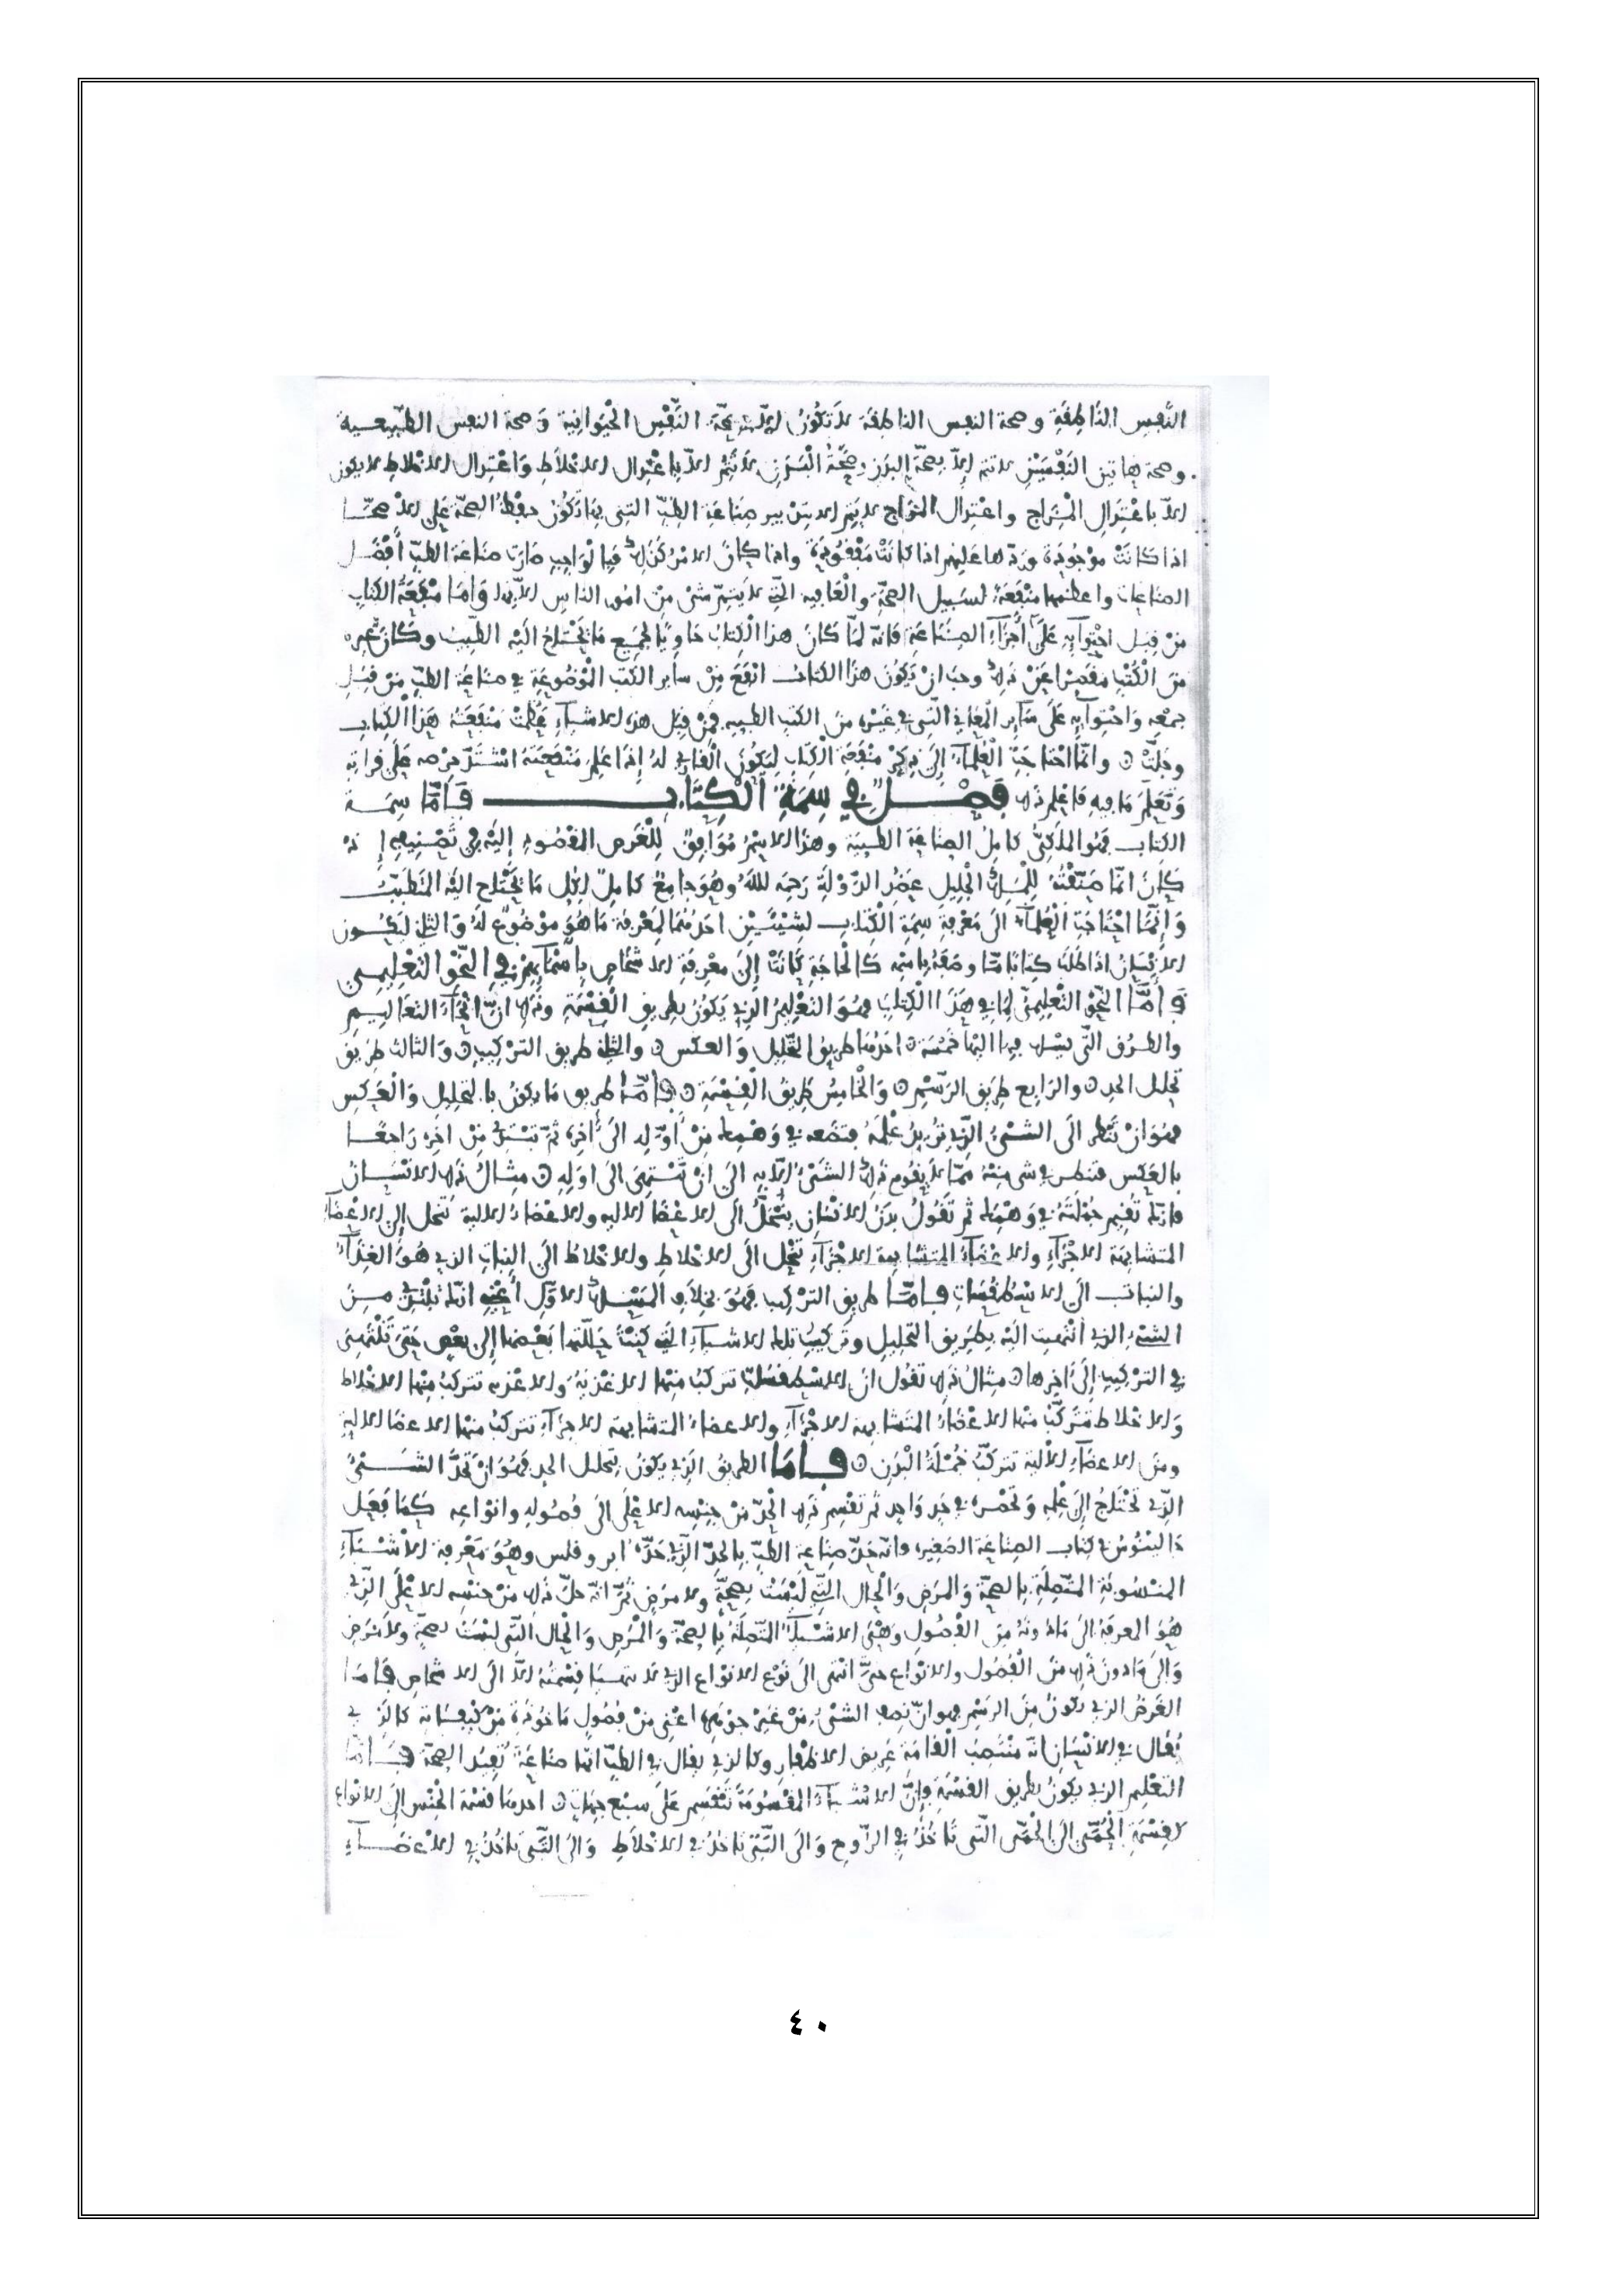 النَّفسِ النَّاطِقَةِ وصحة النفس الناطقة لا تَكُونُ إلّا بصحّة النَّفْسِ الحْيَوَانِية وَصحة النفس الطبّيعسية
وصحة هاتين النَفْسَيْنِ لا تتم إلاّ بصحّة البدن وصِحَّةُ الْبَدَنِ لا تَتُمُّ إلاّ بِاعْتِدال الاخْلاَطِ وَاعْتِدال الاخلاط لا يكون
إلاّ باعْتِدَالِ الْمْـزَاجِ واعْتِدال المزاج لا يَتِم إلا بتدبير صِنَاعَةِ الطِبّ التي بِهَا تَكُونُ حِفْظُ الصحّة عَلى الاصحـَّـا
اذا كَانَتْ موْجُودَة وردّها عَليهم اذا كانَتْ مَفْقُودَة واذا كانَ الامْرُ كَذلِكَ فبِالْوَاجِبِ صَارَت صناعَة الطبّ أفْضَـل
الصناعات واعظمها منْفَعَةً لسَبِيل الصحّةِ والْعَافِيه التي لا يَتِمّ شئ مِنْ امُور الناس إلاّ بها وَامّا منْفَعَةُ الكتاب
مَنْ قِبَل احْتِوَآيِهِ عَلَى أجْزَآءِ الصِنَاعَةِ فَانّه لَمّا كَانَ هذا الْكِتَابُ حَاوِيًا لجميع مَا يَحْتَاجُ الَيْهِ الطّبِيبُ وكَانَ غيره
مِنَ الْكُتْبِ مقَصِّرًا عَنْ ذلِكَ وجبَ انْ يَكُونَ هذَا الكتابُ انْفَعَ مِنْ سَاير الكتب الْمَوْضُوعَةِ في صناعَةِ الطبِّ مِنْ قِبَلِ
جمْعِهِ وَاحْتِوَآيِهِ عَلَى سَآيِر الْمعَانِي الّتِي في غَيْرِه مِنَ الكتب الطبيه فَمِنْ قِبَل هذِه الاشيآءِ عَظُمَتْ مَنْفَعَتُهُ هَذا الْكِتَابِ
وجَلّتْ ⵔ وانّما احْتاجَتِ الْعُلمآءُ إلَى ذِكْرِ مَنْفَعَةِ الْكِتَابِ لِيَكُونَ القارِي لَهُ إذَا عَلِمَ مَنْفَعَتَهُ اشْتَدّ حِرْصه عَلَى قِرَاتِهِ
وَتَعَلّم مَا فيهِ فَاعْلم ذلك فَصْـــلٌ فِي سِمَةِ الْكِتَابِ فَأمَّا سِمَـةُ
الكتاب فَهُو المُلَكِيُّ كامِلُ الصِناعَة الطِبيَةِ وهَذا الاسْمُ مُوَافِقٌ لِلْغَرَضِ المقْصُودِ إلَيْهِ في تَصْنِيفِهِ إذْ
كَانَ انّما صَنّفْتُهُ لِلْمَلِكِ الْجَلِيل عَضُدِ الدّوْلَةِ رَحِمَه اللهُ وهُوَ جامِعٌ كامِلٌ لِكُل مَا يَحْتَاج اليْهِ المتَطَبّبُ
وَإنَّمَا احْتَاجَتِ الْعُلمآءُ الَى مَعْرِفَةِ سِمَةِ الْكِتَابِ لشِيْئَيْنِ احَدهُمَا لِمَعْرِفَة مَا هُوَ موْضُوعٌ لَهُ وَالثاني لِيَكُـون
الانْسَانُ اذَا طَلَبَ كتابًا مّا وصَفَهُ باسْمِهِ كَالْحَاجَةِ كَانَتْ إلَى معْرِفَةِ الاشْخَاصِ بِأسْمَآيِهِمْ في النّحْو التّعْلِيمـِي
فَأمَّا النّحْوُ التّعْلِيميّ لِمَا في هَذَا الْكِتَابِ فهُوَ التَعْلِيمُ الّذِي يَكُونُ بطَرِيقِ الْقِسْمَةِ وذلك انّ انْحَآءَ التعَاليـم
والطـرُق التي يسلك فيها اليْهَا خَمْسَة ⵔ احَدُهَا طَرِيقُ التّحْلِيل وَالعكْسِ ⵔ والثاني طريق التّرْكِيبِ ⵔ وَالثالث طَريق
تحْلِيل الحدِ ⵔ والرّابع طرِيق الرّسْمِ ⵔ وَالْخامِسُ طَرِيقُ الْقِسْمَةِ ⵔ فَأمّا طريق مَا يكونُ بالتحليل وَالْعَكسِ
فهُوَ انْ تَنْظُر الَى الشَّئُ الّذي تُرِيدُ عِلْمَهُ فتضعه في وَهْمِك مِنْ أوّلِهِ الَى أخِرِه ثُمّ تبْتَدِئُ مِنْ اخِرِه رَاجعًـا
بالعَكسِ فتنظر في شئ منْهُ ممّا لا يَقُوم ذلِكَ الشئُ إلاّ بِهِ الَى انْ تَنْتَهِيَ الَى اوَلِهِ ⵔ مِثالُ ذلِكَ الانْسَــان
فانّك تُقِيم جُمْلَتَهُ في وَهْمِك ثم تَقُولُ بدَنُ الانْسَان يَنْحَلُّ الَى الاعْضَا الاليه والاعْضَاءُ الالية تَنحلُّ إلى الاعْضَآءِ
المتشابِهَة الاجْزآءِ والاعْضَآءُ المتشابهة الاجْزآءِ تَنحَل الَى الاخْلاط والاخْلاطُ الَى النَباتِ الذِي هُوَ الغِذَآءُ
والنبات الَى الاسْطُقُسَاتِ فـأمّا طريق التّرْكيب فهُوَ بخِلاَفِ المَسْـلَكِ الاوّلِ أعْنِي انّك تَبْتَدِئُ مِـنَ
الشئِ الذي انْتَهيت الَيْهِ بِطَرِيقِ التحْلِيلِ وتُرَكِبُ تِلكَ الاشيآءَ التي كُنْتَ حَلَّلتها بَعْضها إلَى بعْضٍ حَتّى تَنْتَهِي
في التّرْكيبِ إلَى أخِرِهَا ⵔ مِثالُ ذلك تَقُول انّ الاسْطقسَات تترَكبُ مِنْهَا الاغْذِيَةُ وَالاغْذِيَه تتركبُ مِنْها الاخْلاط
وَالاخْلاط تَتَرَكّبُ مِنْها الاعْضَاءُ المتَشابِهَه الاجْزآءِ والاعضاءُ المتشابِهة الاجزآءِ تتركبُ مِنْها الاعضَا الالية
ومِنَ الاعضَآءِ الالية تتركّبُ جُمْلَةُ الْبَدَنِ ⵔ فـأمّا الطرِيقُ الّذِي يَكُونُ بتحليل الحدِ فَهُوَ انْ تَحُدّ الشَّـئَ
الّذِي تَحْتَاجُ إلَى عِلْمِهِ وَتَحْصُره في حَدٍ وَاحِدٍ ثمّ تقْسِم ذلك الْحَدّ مِنْ جِنْسِه الاعْلَى الَى فُصُولِهِ وانْوَاعِهِ كَمَا فَعَل
جَالِينُوسُ في كتَاب الصِناعَة الصَغِيرِه فانّه حَدّ صِنَاعَةَ الطبّ بالحدّ الّذِي حَدّهُ ابروفلس وهُوَ مَعْرِفة الاشْيَـآءِ
المنْسُوبَةِ المتّصِلَةِ بِالصحّةِ وَالمرَضِ وَالْحَال الّتِي لَيْسَتْ بصِحّةٍ ولا مرَضٍ ثُمّ انّه حلّ ذلك مِنْ جنْسِه الاعْلَى الّذِي
هُوَ المعرفَةُ الَى مَا دُونَهُ مِنَ الْفُصُولِ وَهْيَ الاشْيَآءُ المتّصِلَةُ بالصحّة وَالْمرَضِ وَالْحالِ الّتي ليْسَتْ بصحّةٍ ولا مَرَضٍ
وَإلَى مَا دونَ ذلك مِنَ الْفُصُولِ والانْوَاعِ حتّى انْتهى الَى نَوْع الانوَاعِ الذِي لا تتهيا قِسْمتُهُ إلاّ الَى الاشخاصِ فَامّا
الغَرضُ الذي يكونُ مِنَ الرسْمِ فهو انْ تصِف الشئَ مِنْ غَيْرِ جوْهَرِه اعْنِي مِنْ فُصُولٍ مَاخُوذَة مِنْ كَيْفِيّاتِهِ كالّذِي
يُقال في الانْسَانِ انّهُ مُنْتَصِبُ الْقَامَة عَرِيضُ الاظْفَارِ وكالذِي يقالُ في الطبّ انّها صنَاعَةٌ تُفِيدُ الصحّة فـأمّا
التعْلِيم الذِي يكونُ بطرِيق القِسْمَةِ فإنَّ الاشْيـآءَ الْمقْسُومَةَ تَنْقَسِم عَلَى سبْع جِهَاتٍ ⵔ احدهَا قسْمَة الجنْسِ إلَى الانْوَاعِ
كَقِسْمَةِ الْحُمّى الَى الْحُمّى الّتي تَأخُذُ في الرّوحِ وَالَى الّتِي تاخُذُ في الاخْلاَطِ وَالَى التّي تاخُذُ في الاعْضَـــآءِ
٤٠